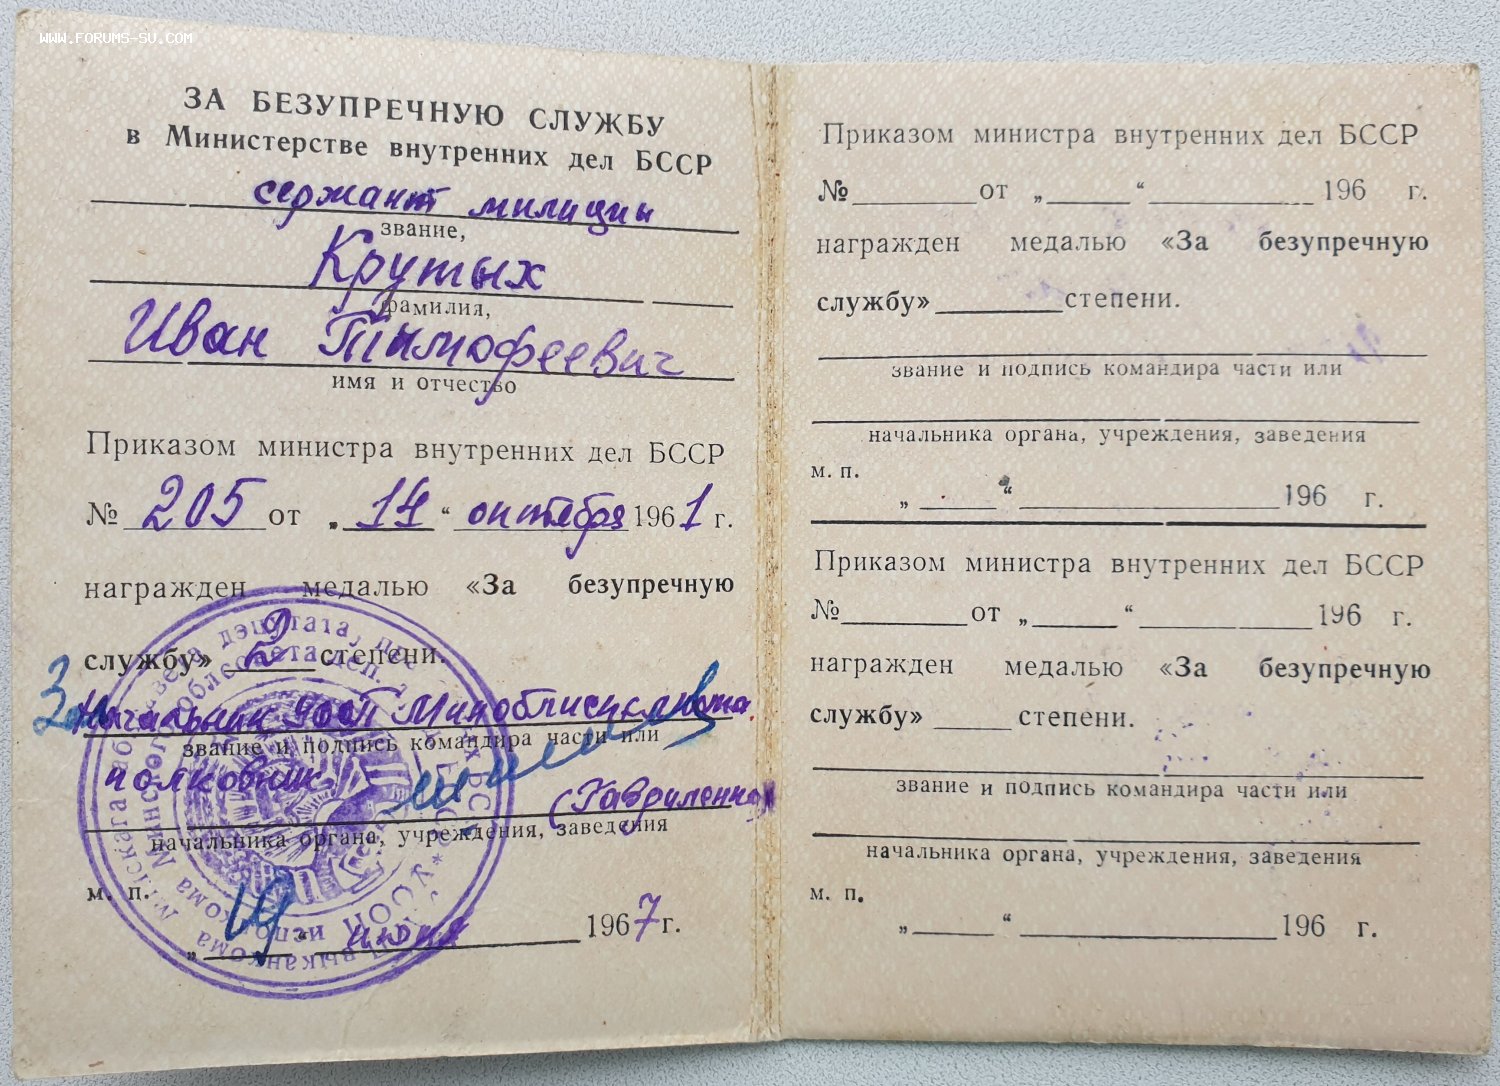 WWW.FORUMS-SU.COM
ЗА БЕЗУПРЕЧНУЮ СЛУЖБУ
в Министерстве внутренних дел БССР
сержант милиции
звание,
Крутых
фамилия,
Иван Тимофеевич
имя и отчество
Приказом министра внутренних дел БССР
№ 205 от „ 14 “ октября 1961 г.
награжден медалью «За безупречную
службу» 2 степени.
Зам Начальник УООП Миноблисполкома
звание и подпись командира части или
полковник (Гавриленко)
начальника органа, учреждения, заведения
м. п.
„ 19 “ июня 1967 г.
Приказом министра внутренних дел БССР
№ от „ “ 196 г.
награжден медалью «За безупречную
службу» степени.
звание и подпись командира части или
начальника органа, учреждения, заведения
м. п.
„ “ 196 г.
Приказом министра внутренних дел БССР
№ от „ “ 196 г.
награжден медалью «За безупречную
службу» степени.
звание и подпись командира части или
начальника органа, учреждения, заведения
м. п.
„ “ 196 г.